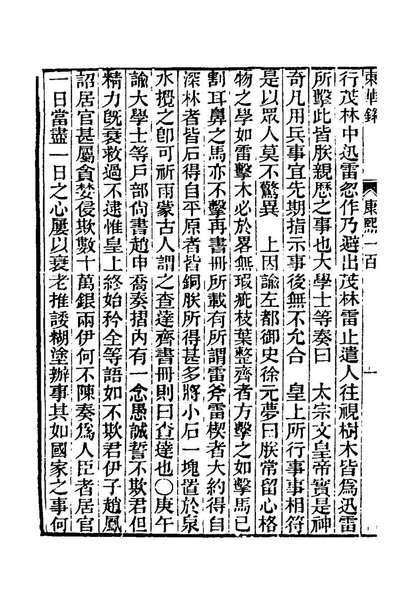 東華錄
康熙一百
十
行茂林中迅雷忽作乃避出茂林雷止遣人往視樹木皆爲迅雷
所擊此皆朕親歷之事也大學士等奏曰　太宗文皇帝實是神
奇凡用兵事宜先期指示事後無不允合　皇上所行事事相符
是以眾人莫不驚異　上因諭左都御史徐元夢曰朕常留心格
物之學如雷擊木必於畧無瑕疵枝葉整齊者方擊之如擊馬已
割耳鼻之馬亦不擊再書冊所載有所謂雷斧雷楔者大約得自
深林者皆石得自平原者皆銅朕所得甚多將小石一塊置於泉
水攪之卽可祈雨蒙古人謂之查達齊書冊則曰查達也○庚午
諭大學士等戶部尙書趙申喬奏摺內有一念愚誠誓不欺君但
精力旣衰救過不逮惟皇上終始矜全等語如不欺君伊子趙鳳
詔居官甚屬貪婪侵欺數十萬銀兩伊何不陳奏爲人臣者居官
一日當盡一日之心屢以衰老推諉糊塗辦事其如國家之事何